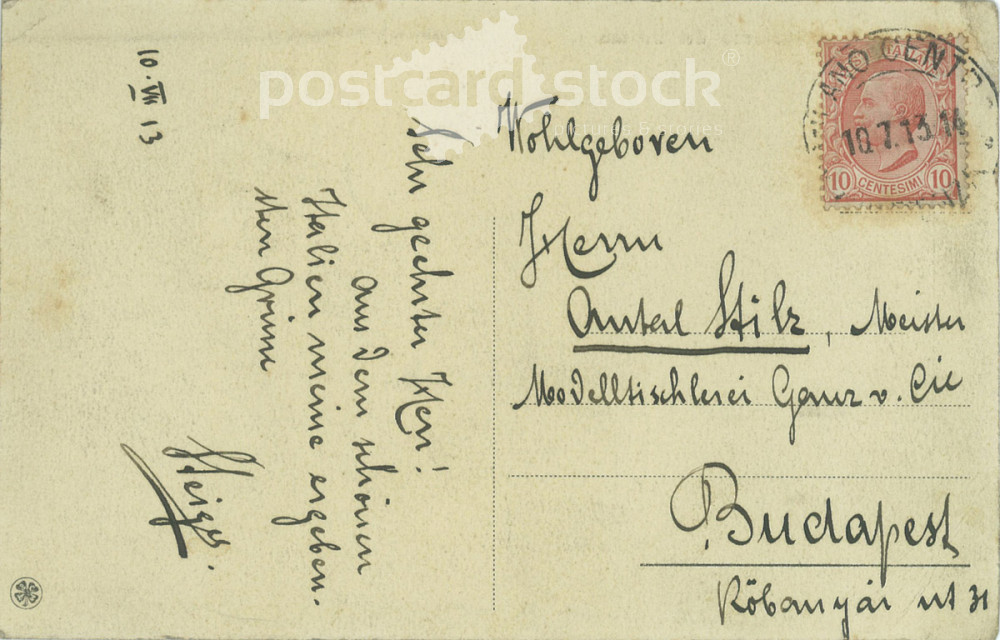 10. VII 13
Sehr geehrter Herr!
aus dem schönen
Italien meine ergeben-
sten Grüsse
Steiger.
Wohlgeboren
Herrn
Antal Stilz, Meister
Modelltischlerei Ganz v. Cie
Budapest
Köbanyai ut 31
MILANO CENTRO
10.7.13.14
10 CENTESIMI 10
postcard stock®